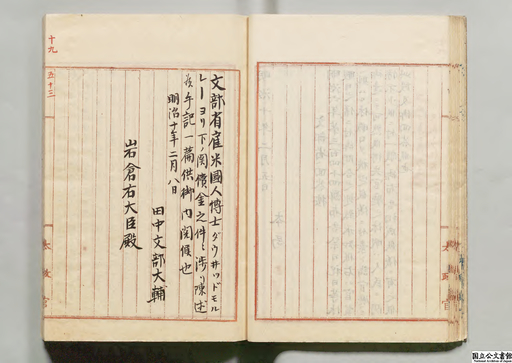 文部省雇米國人博士ダウ井ッドモル
レーヨリ下ノ関償金之件ニ渉リ陳述
候手記一篇供御内閲候也
明治十年二月八日
田中文部大輔
岩倉右大臣殿
十九
五十三
太政官
太政官
国立公文書館
National Archives of Japan